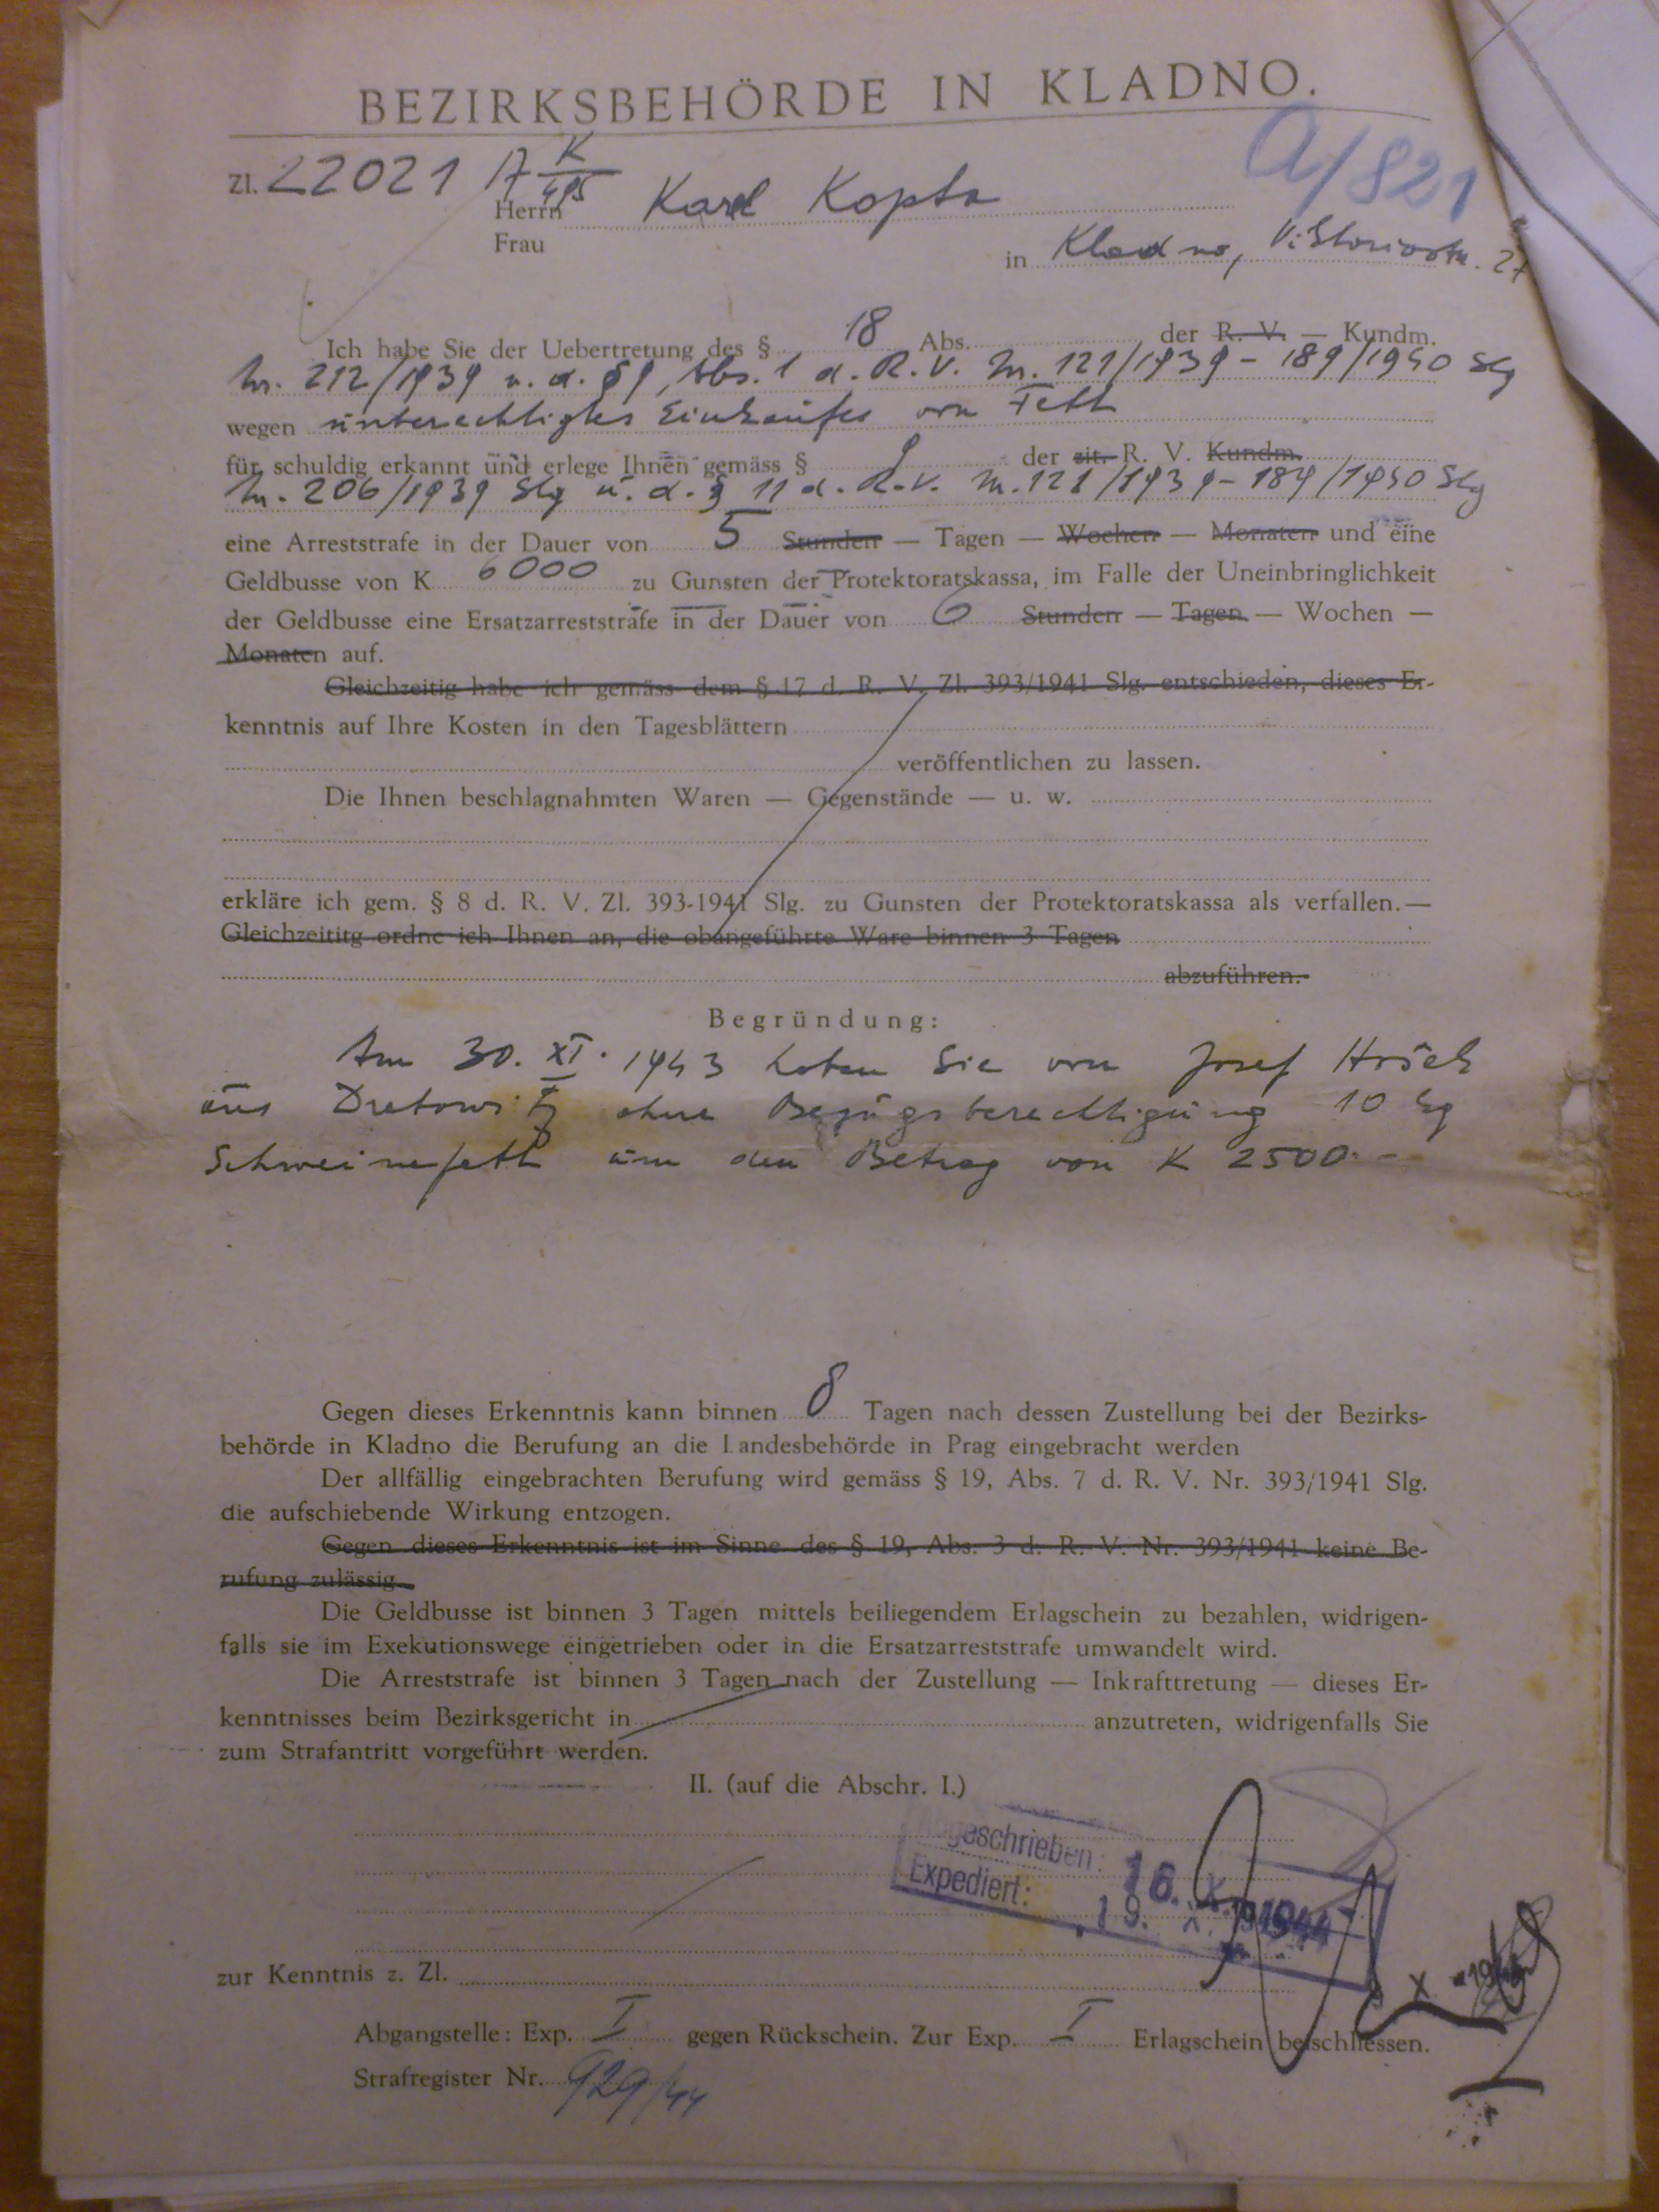 BEZIRKSBEHÖRDE IN KLADNO.
a/821
Zl. 22021 A K/495
Herrn Karel Kopta
Frau
in Kladno, Viktoriastr. 27
Ich habe Sie der Uebertretung des § 18 Abs. der R. V. — Kundm.
Nr. 212/1939 u. d. § 1, Abs. 1 d. R. V. Nr. 121/1939 - 189/1940 Slg
wegen unberechtigtes Einkaufes von Fett
für schuldig erkannt und erlege Ihnen gemäss § 1 der zit. R. V. Kundm.
Nr. 206/1939 Slg u. d. § 11 d. R. V. Nr. 121/1939 - 189/1940 Slg
eine Arreststrafe in der Dauer von 5 Stunden — Tagen — Wochen — Monaten und eine
Geldbusse von K 6000 zu Gunsten der Protektoratskassa, im Falle der Uneinbringlichkeit
der Geldbusse eine Ersatzarreststrafe in der Dauer von 6 Stunden — Tagen — Wochen —
Monaten auf.
Gleichzeitig habe ich gemäss dem § 17 d. R. V. Zl. 393/1941 Slg. entschieden, dieses Er-
kenntnis auf Ihre Kosten in den Tagesblättern
veröffentlichen zu lassen.
Die Ihnen beschlagnahmten Waren — Gegenstände — u. w.
erkläre ich gem. § 8 d. R. V. Zl. 393-1941 Slg. zu Gunsten der Protektoratskassa als verfallen.—
Gleichzeititg ordne ich Ihnen an, die obangeführte Ware binnen 3 Tagen
abzuführen.-
Begründung:
Am 30. XI. 1943 haben Sie von Josef
aus Dretowitz ohne Bezugsberechtigung 10 kg
Schweinefett um den Betrag von K 2500.-
Gegen dieses Erkenntnis kann binnen 8 Tagen nach dessen Zustellung bei der Bezirks-
behörde in Kladno die Berufung an die Landesbehörde in Prag eingebracht werden
Der allfällig eingebrachten Berufung wird gemäss § 19, Abs. 7 d. R. V. Nr. 393/1941 Slg.
die aufschiebende Wirkung entzogen.
Gegen dieses Erkenntnis ist im Sinne des § 19, Abs. 3 d. R. V. Nr. 393/1941 keine Be-
rufung zulässig.
Die Geldbusse ist binnen 3 Tagen mittels beiliegendem Erlagschein zu bezahlen, widrigen-
falls sie im Exekutionswege eingetrieben oder in die Ersatzarreststrafe umwandelt wird.
Die Arreststrafe ist binnen 3 Tagen nach der Zustellung — Inkrafttretung — dieses Er-
kenntnisses beim Bezirksgericht in anzutreten, widrigenfalls Sie
zum Strafantritt vorgeführt werden.
II. (auf die Abschr. I.)
Abgeschrieben: 16. X. 1944
Expediert: 19. X. 1944
zur Kenntnis z. Zl.
Abgangstelle: Exp. I gegen Rückschein. Zur Exp. I Erlagschein beischliessen.
Strafregister Nr. 929/44